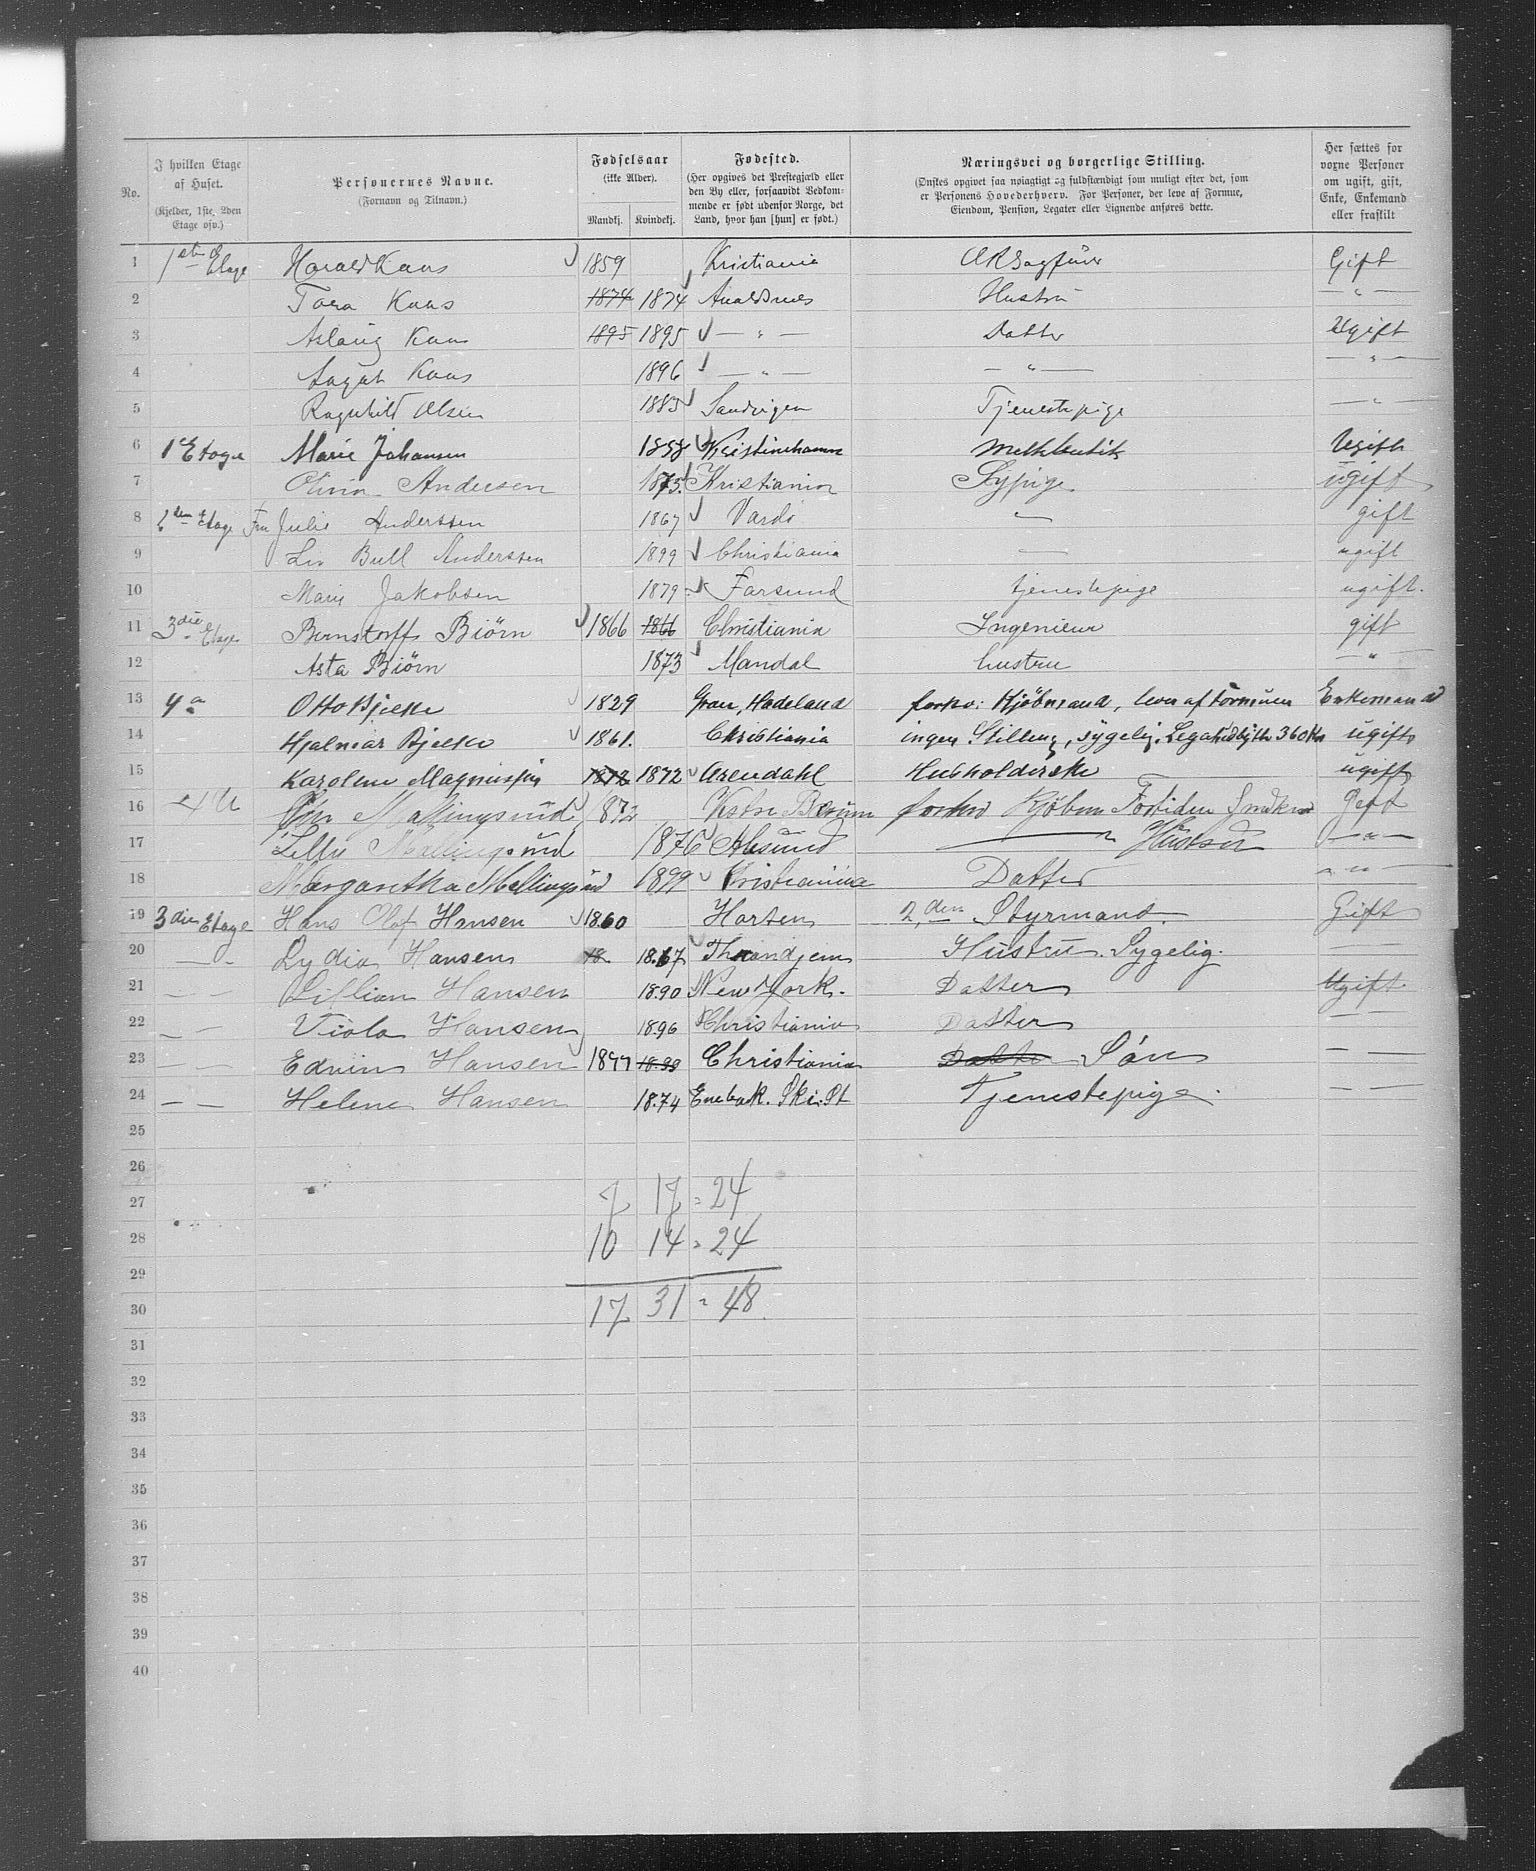 No.
I hvilken Etage af Huset. (Kjelder, 1ste, 2den Etage osv.)
Personernes Navne. (Fornavn og Tilnavn.)
Fødselsaar (ikke Alder). Mandkj. Kvindekj.
Fødested. (Her opgives det Præstegjæld eller den By eller, forsaavidt Vedkommende er født udenfor Norge, det Land, hvor han [hun] er født.)
Næringsvei og borgerlige Stilling. (Ønskes opgivet saa nøiagtigt og fuldstændigt som muligt efter det, som er Personens Hovederhverv. For Personer, der leve af Formue, Eiendom, Pension, Legater eller Lignende anføres dette.)
Her sættes for voxne Personer om ugift, gift, Enke, Enkemand eller fraskilt
1 1ste Etage Harald Kaas 1859 Kristiania Gift
2 Tora Kaas 1874 1874 Avaldsnes Hustru — " —
3 Aslaug Kaas 1895 1895 — " — Datter Ugift
4 Kaas 1896 — " — — " — — " —
5 Ragnhild Olsen 1883 Sandvigen Tjenestepige — " —
6 1 Etage Marie Johansen 1858 Kristinehamn Melkbutik Ugift
7 Olivia Andersen 1875 Kristiania Sypige ugift
8 Etage Fru Julie Anderssen 1867 Vardö — gift
9 Liv Bull Anderssen 1899 Christiania — ugift
10 Marie Jakobsen 1879 Farsund tjenestepige ugift.
11 3die Etage Bernstorff Biørn 1866 1866 Christiania Ingenieur gift
12 Asta Biørn 1873 Mandal hustru — " —
13 4 a Otto Bjelke 1829 Gran, Hadeland forhv: Kjöbmand, lever af formuen Enkemand
14 Hjalmar Bjelke 1861. Christiania ingen Stilling, sygelig. Legatudbytte 360 Kr ugift
15 Karoline Magnussen 1872 1872 Arendahl Husholderske ugift
16 Mellingsund 1872 Vestre Bærum forhv Kjöbm Fortiden Gift
17 Mellingsund 1876 Alesund — " Hustru — " —
18 Margaretha Mellingsund 1899 Kristiania Datter — " —
19 3die Etage Hans Olaf Hansen 1860 Horten 2,den Styrmand. Gift
20 — - Lydia Hansen 18 18.67 Throndjem Hustru. Sygelig. —
21 — — Lillian Hansen 18.90 New York. Datter Ugift
22 — — Viola Hansen 18.96 Christiania Datter — —
23 — — Edvin Hansen 1899 18.99 Christiania Datter Sön — —
24 — — Helene Hansen 18.74 Enebak. Ski. St Tjenestepige. — —
25
26
27 7 17 = 24
28 10 14 = 24
29
30 17 31 = 48
31
32
33
34
35
36
37
38
39
40